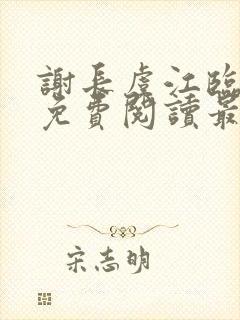 謝長虔江臨
免費閱讀最
宋志明